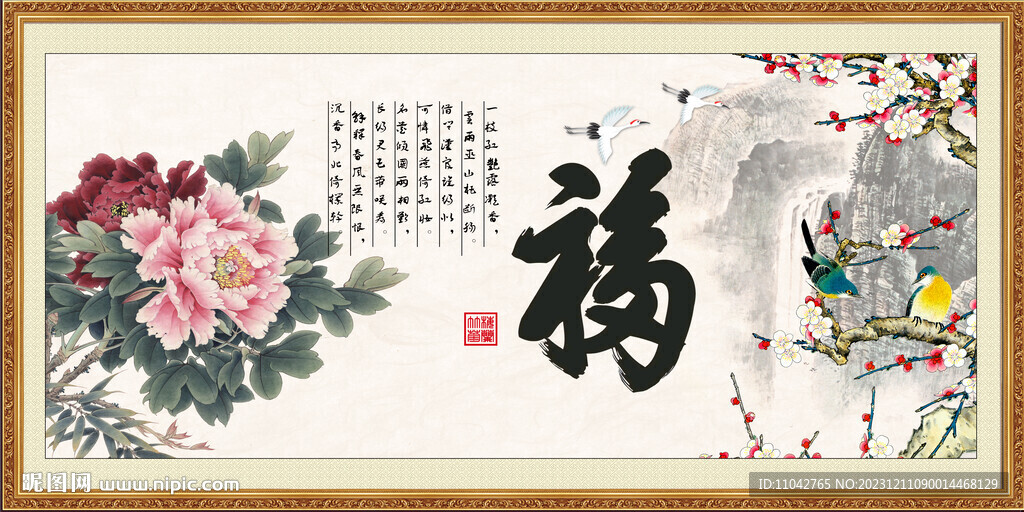 一枝紅艷露凝香，
雲雨巫山枉断肠。
借问漢宫谁得似，
可憐飛燕倚红妆。
名花倾國兩相歡，
长得君王带笑看。
解釋春風無限恨，
沉香亭北倚欄杆。
福
昵图网 www.nipic.com
ID:11042765 NO:20231211090014468129